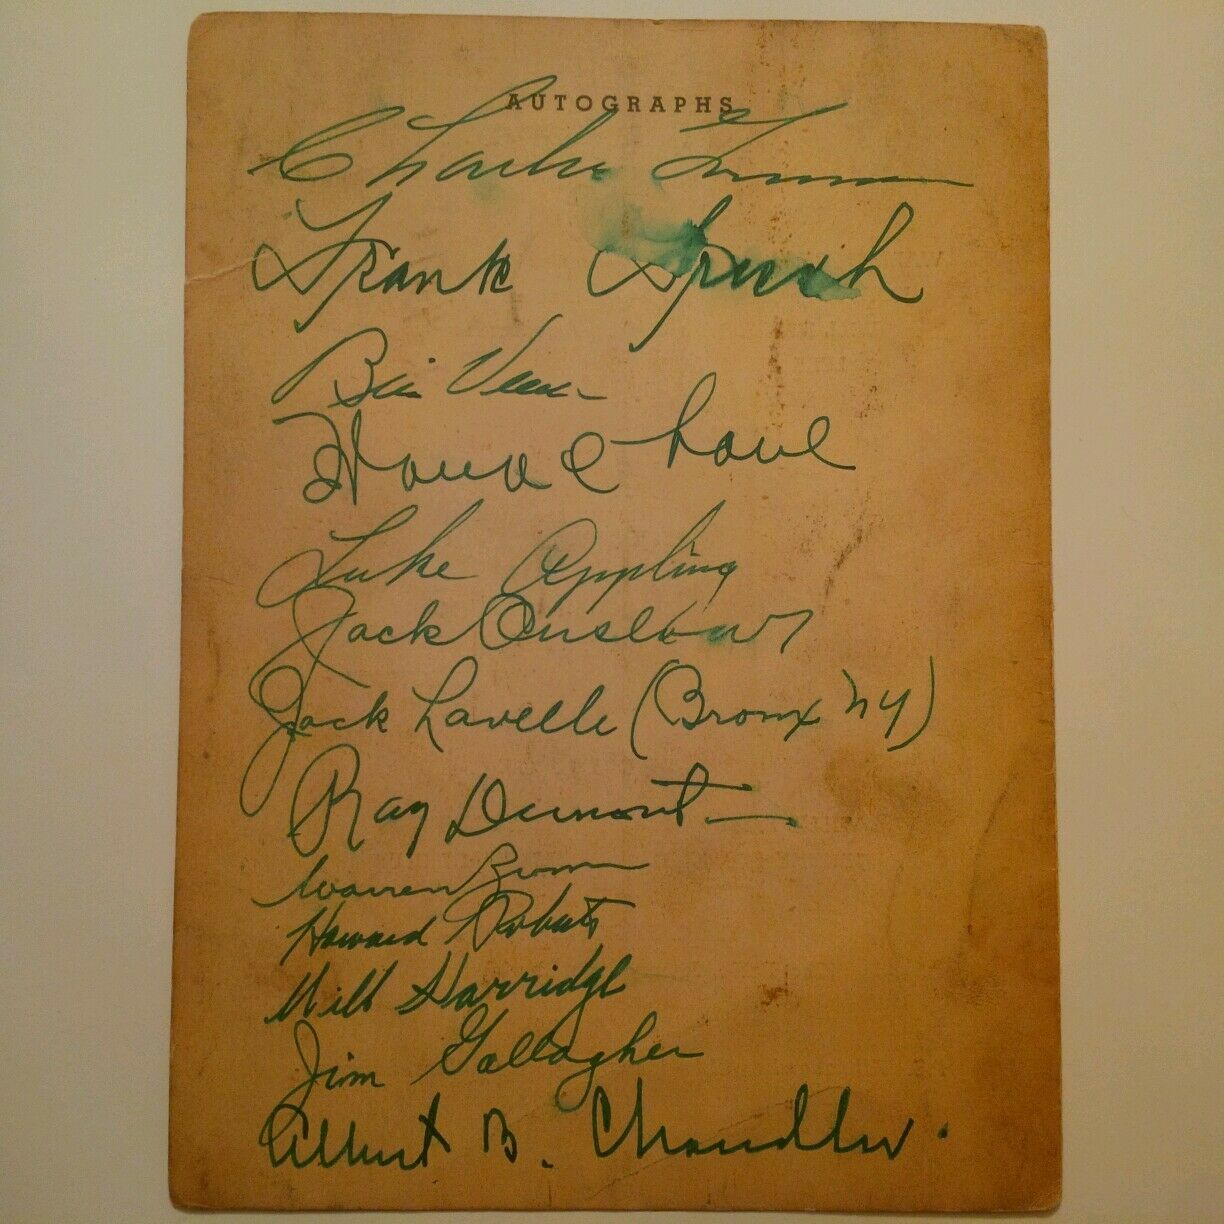 AUTOGRAPHS
Charlie
Frank
Bill Veeck
Luke Appling
Jack Onslow
Jack Lavelle (Bronx NY)
Ray Dumont
Warren Brown
Howard Roberts
Will Harridge
Jim Gallagher
Albert B. Chandler.